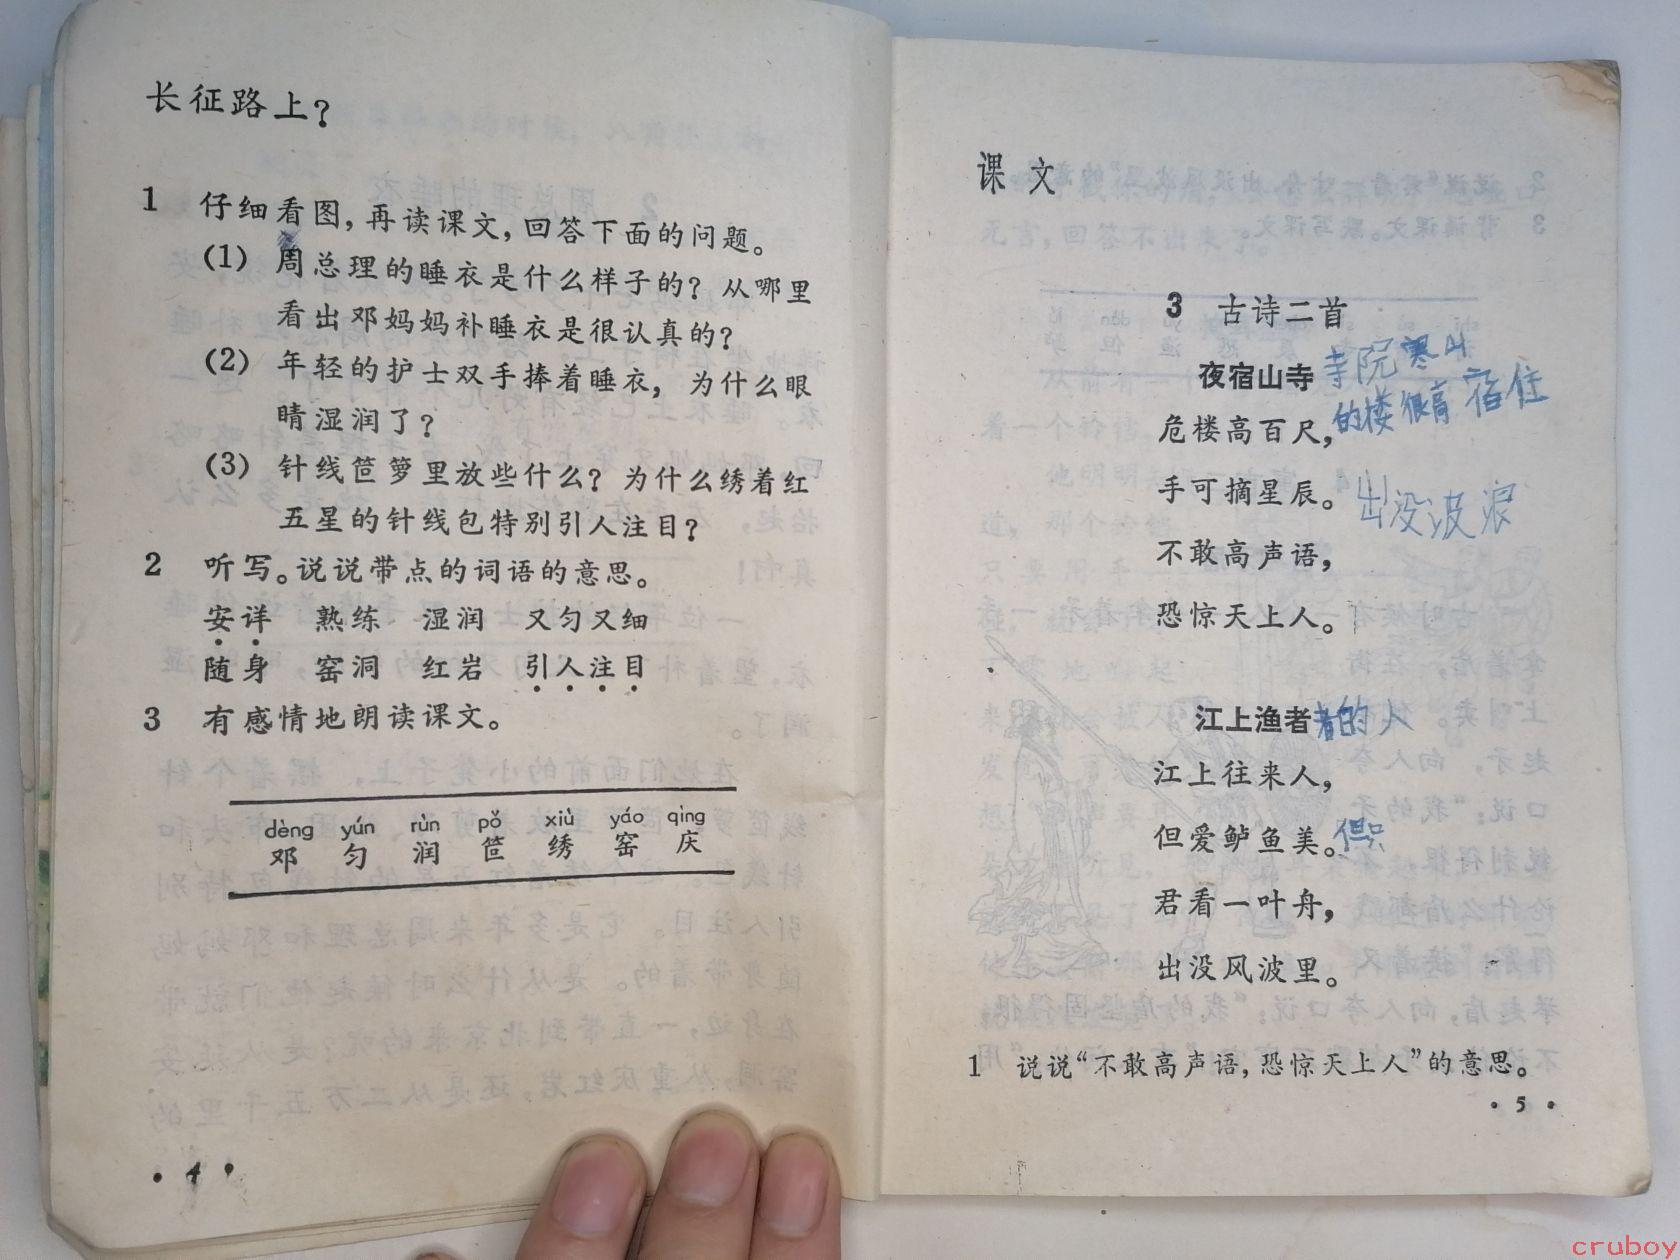 长征路上？
1 仔细看图，再读课文，回答下面的问题。
(1) 周总理的睡衣是什么样子的？从哪里
看出邓妈妈补睡衣是很认真的？
(2) 年轻的护士双手捧着睡衣，为什么眼
睛湿润了？
(3) 针线笸箩里放些什么？为什么绣着红
五星的针线包特别引人注目？
2 听写。说说带点的词语的意思。
安详 熟练 湿润 又匀又细
随身 窑洞 红岩 引人注目
3 有感情地朗读课文。
dèng yún rùn pǒ xiù yáo qìng
邓 匀 润 笸 绣 窑 庆
• 4 •
课文
3 古诗二首
夜宿山寺 寺院
危楼高百尺， 的楼很高 宿住
手可摘星辰。 出没波浪
不敢高声语，
恐惊天上人。
江上渔者 者的人
江上往来人，
但爱鲈鱼美。 但只
君看一叶舟，
出没风波里。
1 说说“不敢高声语，恐惊天上人”的意思。
• 5 •
cruboy